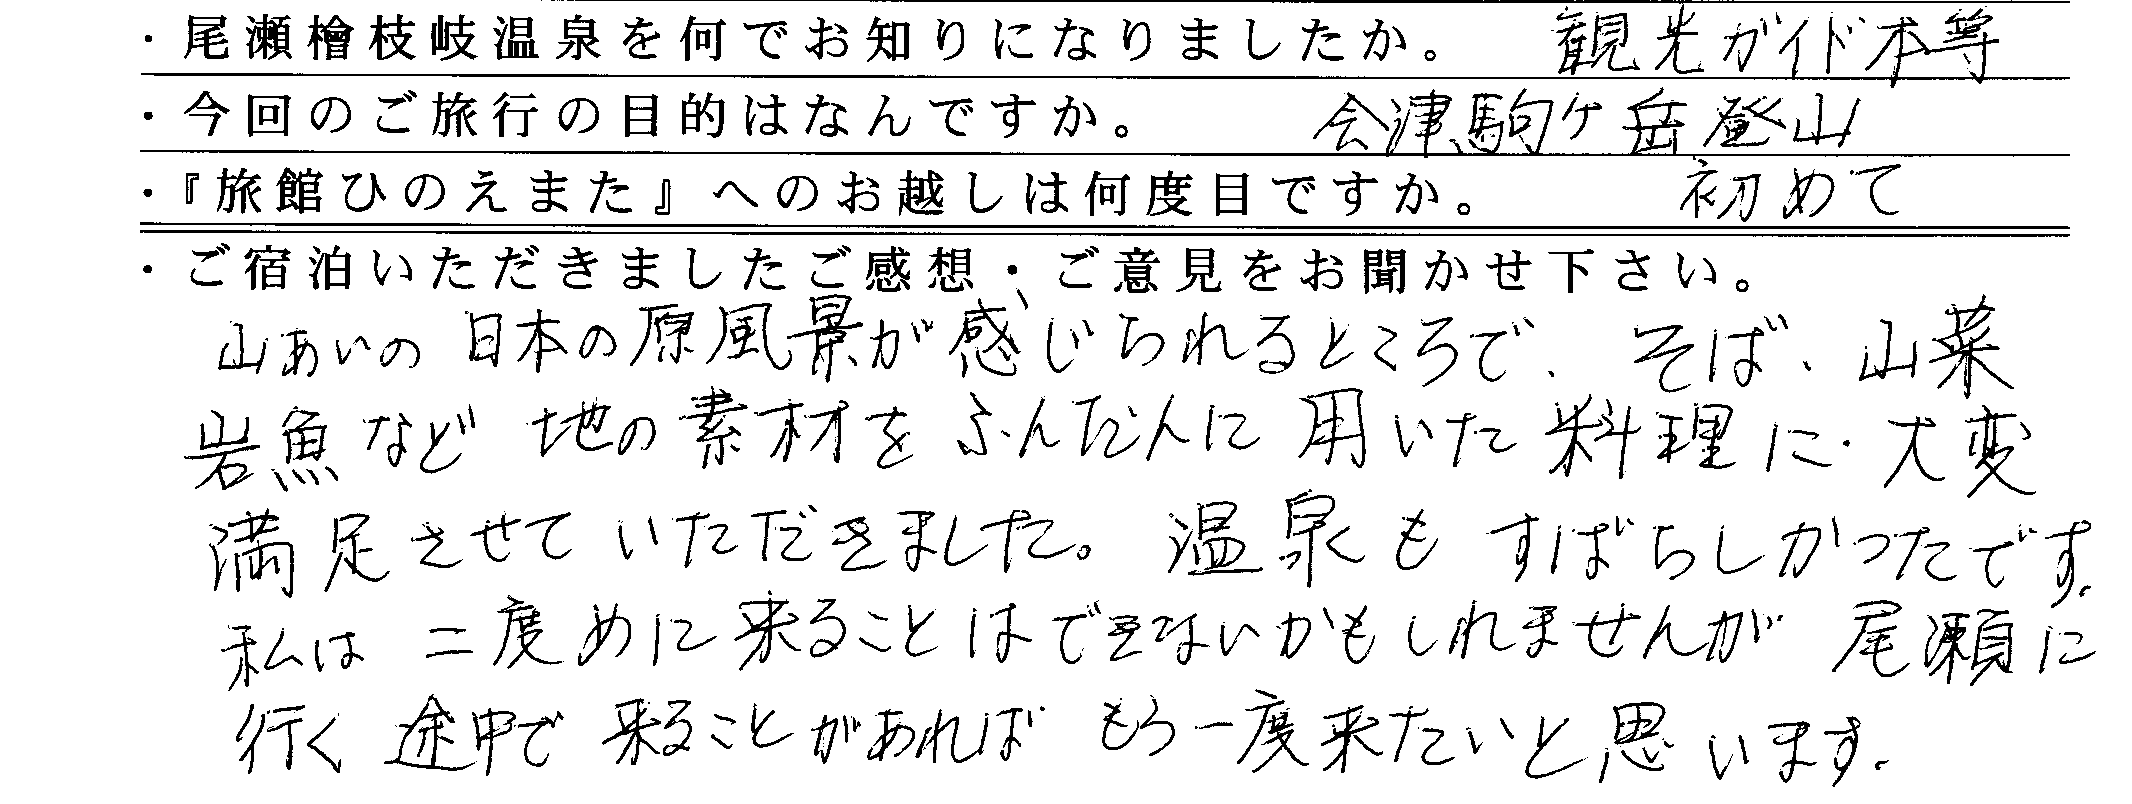 ・尾瀬檜枝岐温泉を何でお知りになりましたか。 観光ガイド本等
・今回のご旅行の目的はなんですか。 会津駒ヶ岳登山
・『旅館ひのえまた』へのお越しは何度目ですか。 初めて
・ご宿泊いただきましたご感想・ご意見をお聞かせ下さい。
山あいの日本の原風景が感じられるところで、そば、山菜
岩魚など地の素材をふんだんに用いた料理に、大変
満足させていただきました。温泉もすばらしかったです。
私は二度めに来ることはできないかもしれませんが尾瀬に
行く途中で来ることがあればもう一度来たいと思います。